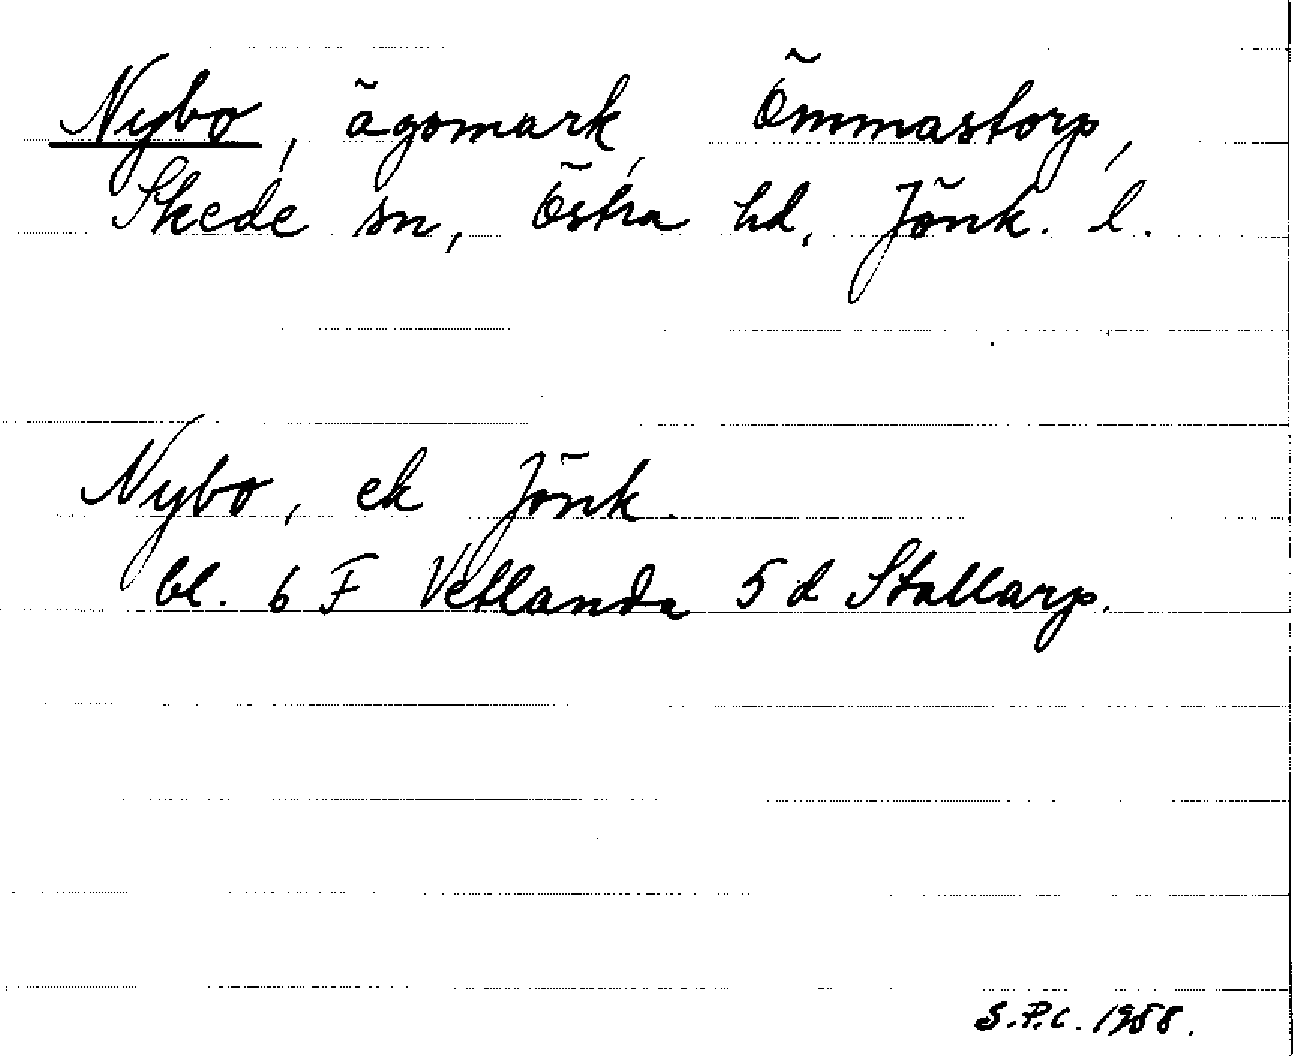 Nybo, ägomark, Ömmastorp,
Skede sn, Östra hd, Jönk. l.
Nybo, ek Jönk.
bl. 6 F Vetlanda 5 d Stallarp.
S.P.C. 1958.